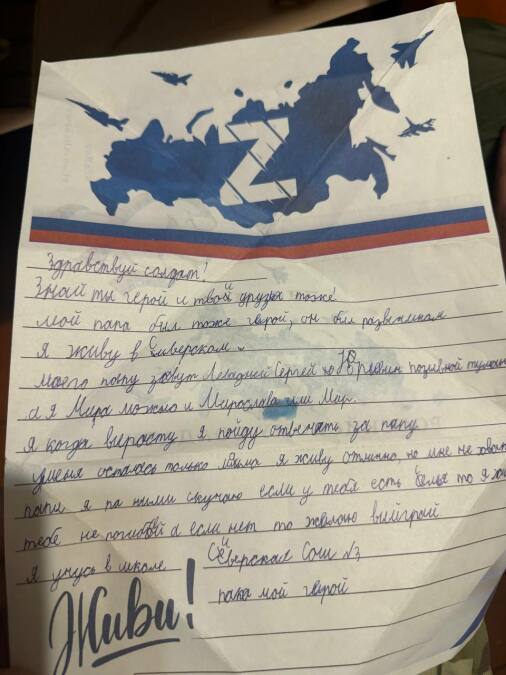 Z
Здравствуй солдат!
Знай ты герой и твой друзья тоже
мой папа был тоже герой, он был разветчикам
я живу в Сиверском.
моего папу зовут Сергей Юрьевич позывной туман
а я Мира можно и Мирослава или Мар.
я когда вырасту я пойду отвечать за папу
уменя осталась только мама я живу отлично, но мне не хватает
папы я па ними скучаю если у тебя есть то я
тебе не погибай а если нет то желаю выйграй
я учусь в школе Северская Сош №3
пака мой герой
Живи!